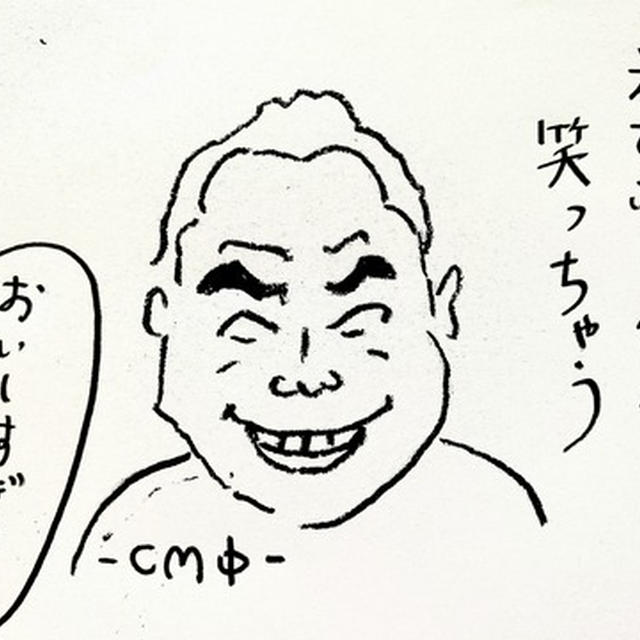 笑っちゃう
おいしすぎ
-CMφ-